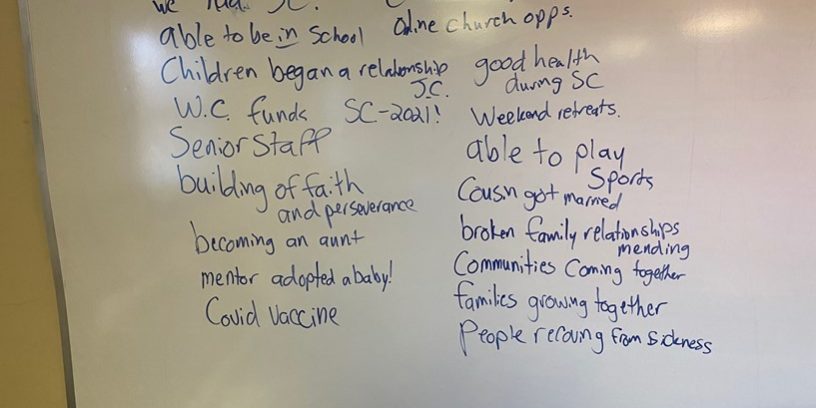 we had SC!
able to be in School
Online church opps.
Children began a relationship
J.C.
W.C. funds SC-2021!
Senior Staff
building of faith
and perseverance
becoming an aunt
mentor adopted a baby!
Covid Vaccine
good health
during SC
Weekend retreats.
able to play
Sports
Cousin got married
broken family relationships
mending
Communities Coming together
families growing together
People recoving from Sickness